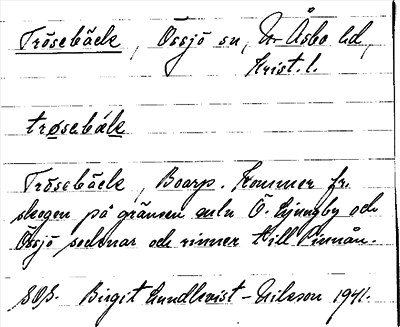 Trösebäck, Össjö sn, N. Åsbo hd,
Krist. l.
trøsebäk
Trösebäck, Boarp. Kommer fr.
skogen på gränsen mln Ö. Ljungby och
Össjö socknar och rinner till Pinnån.
SOS. Birgit Lundkvist-Nilsson 1941.